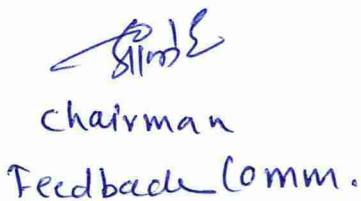 Chairman
Feedback Comm.